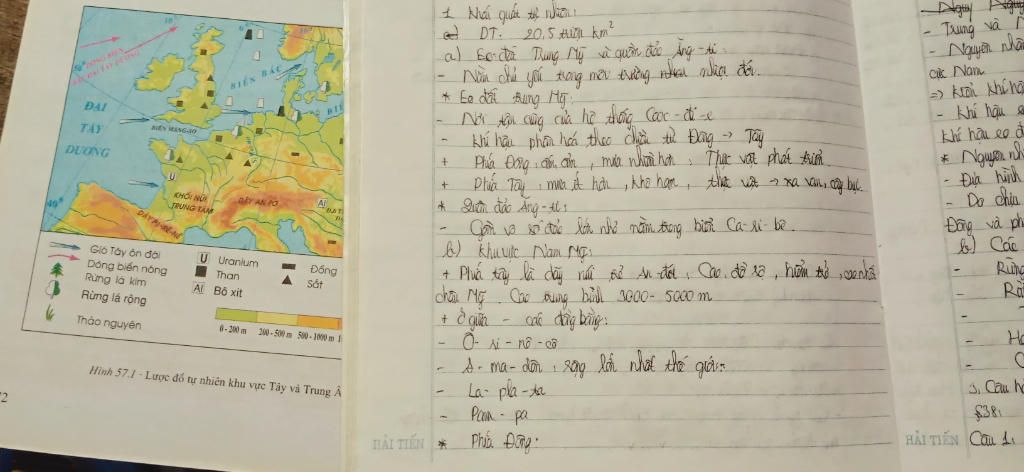 10°
0°
50°
DÒNG BIỂN
BẮC ĐẠI TÂY DƯƠNG
ĐẠI
TÂY
DƯƠNG
BIỂN BẮC
BIỂN MĂNG-SƠ
KHỐI NÚI
TRUNG TÂM
DÃY AN-PƠ
DÃY PI-RÊ-NÊ
40°
Gió Tây ôn đới
Dòng biển nóng
Rừng lá kim
Rừng lá rộng
Thảo nguyên
U Uranium
Than
Al Bô xít
Đồng
Sắt
0-200 m 200-500 m 500-1000 m
Hình 57.1 - Lược đồ tự nhiên khu vực Tây và Trung Â
2
1. Khái quát tự nhiên:
DT: 20,5 triệu km²
a) Eo đất Trung Mỹ và quần đảo Ăng-ti:
- Nằm chủ yếu trong môi trường nhiệt đới.
* Eo đất trung Mỹ:
- Nơi tận cùng của hệ thống Cooc-đi-e
- Khí hậu phân hoá theo chiều từ Đông → Tây
+ Phía Đông: mưa nhiều hơn, Thực vật phát triển.
+ Phía Tây: mưa ít hơn, khô hạn, thực vật → xa van, cây bụi.
* Quần đảo Ăng-ti:
- Gồm vô số đảo lớn nhỏ nằm trong biển Ca-ri-bê.
b) Khu vực Nam Mỹ:
+ Phía tây là dãy núi trẻ An-đét, Cao, đồ sộ, hiểm trở, cao nhất
châu Mỹ. Cao trung bình 3000-5000m
+ Ở giữa - các đồng bằng:
- Ô-ri-nô-cô
- A-ma-dôn: rộng lớn nhất thế giới
- La-pla-ta
- Pam-pa
* Phía Đông:
HẢI TIẾN
- Trung và
- Nguyên nhân
Nam
- Khí hậu
Khí hậu eo đ
* Nguyên nh
- Địa hình
- Do chịu
Đông và ph
b) Các
- Rừng
3. Câu h
§38:
HẢI TIẾN
Câu 1: